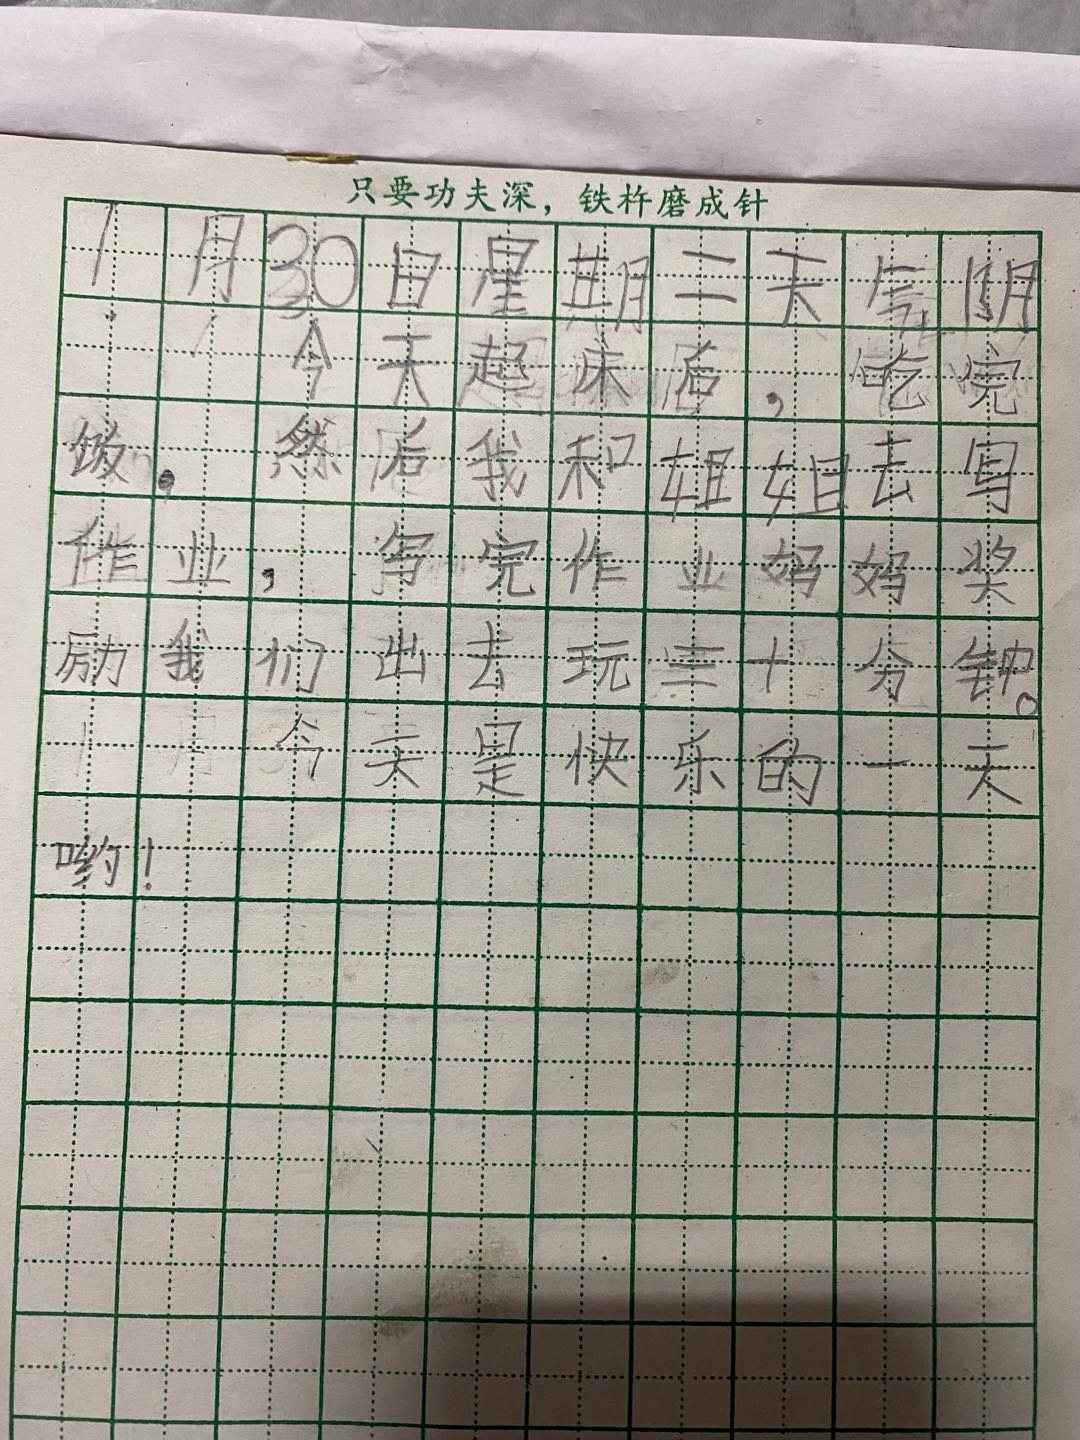 只要功夫深，铁杵磨成针
1月30日星期二天气阴
今天起床后，吃完
饭。然后我和姐姐去写
作业，写完作业妈妈奖
励我们出去玩三十分钟。
今天是快乐的一天
哟！